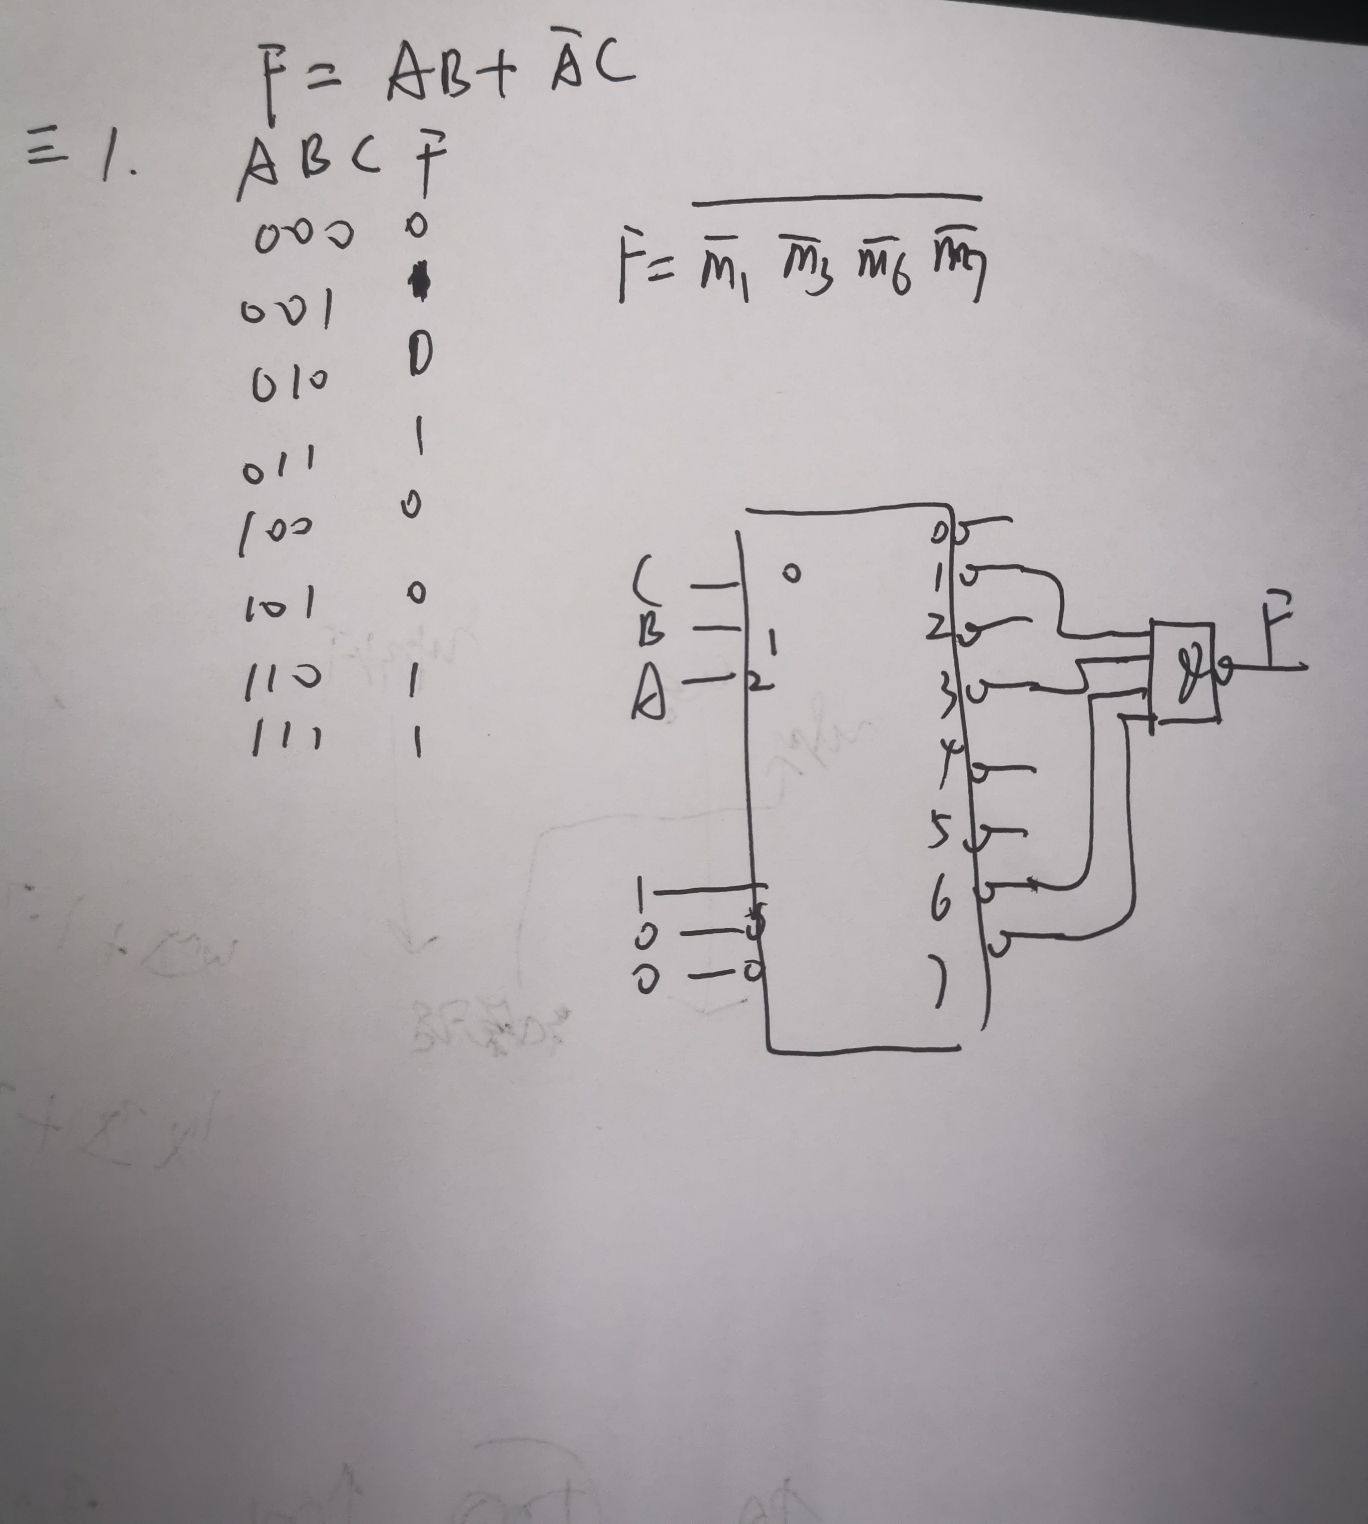 F = AB + ĀC
三 1.
A B C F
000 0
001
010 0
011 1
100 0
101 0
110 1
111 1
F = \overline{m̄₁ m̄₃ m̄₆ m̄₇}
C 0 0
B 1 1
A 2 2
3
4
5
1 6
0
0 7
& F